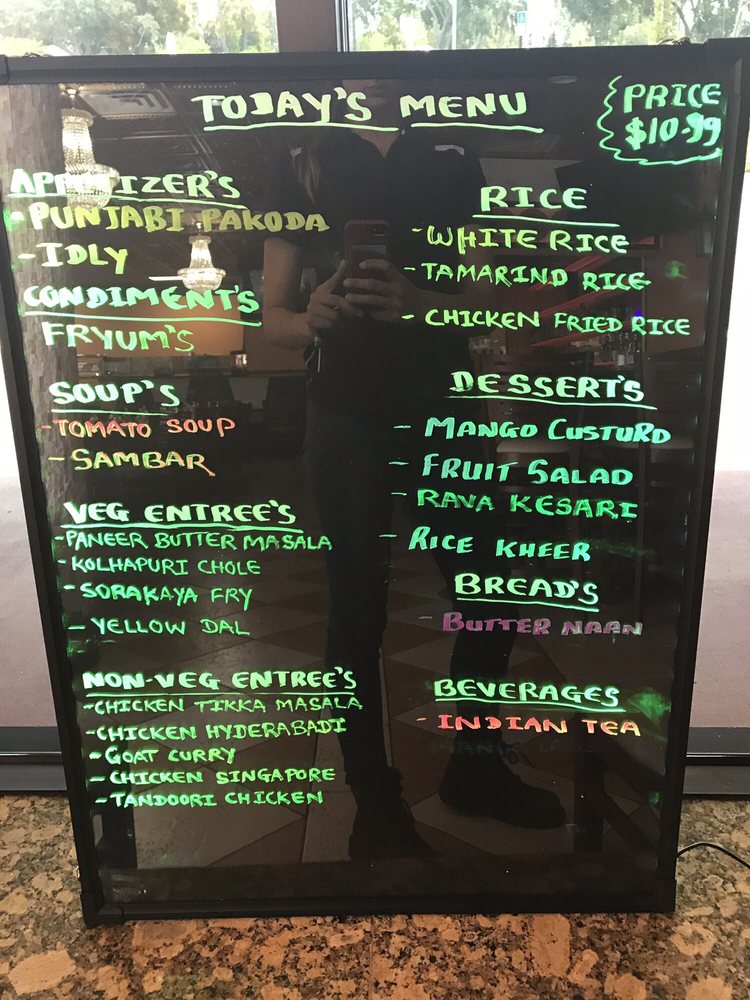 TODAY'S MENU
PRICE
$10.99
APPETIZER'S
- PUNJABI PAKODA
- IDLY
CONDIMENT'S
FRYUM'S
SOUP'S
- TOMATO SOUP
- SAMBAR
VEG ENTREE'S
- PANEER BUTTER MASALA
- KOLHAPURI CHOLE
- SORAKAYA FRY
- YELLOW DAL
NON-VEG ENTREE'S
- CHICKEN TIKKA MASALA
- CHICKEN HYDERABADI
- GOAT CURRY
- CHICKEN SINGAPORE
- TANDOORI CHICKEN
RICE
- WHITE RICE
- TAMARIND RICE
- CHICKEN FRIED RICE
DESSERT'S
- MANGO CUSTURD
- FRUIT SALAD
- RAVA KESARI
- RICE KHEER
BREAD'S
- BUTTER NAAN
BEVERAGES
- INDIAN TEA